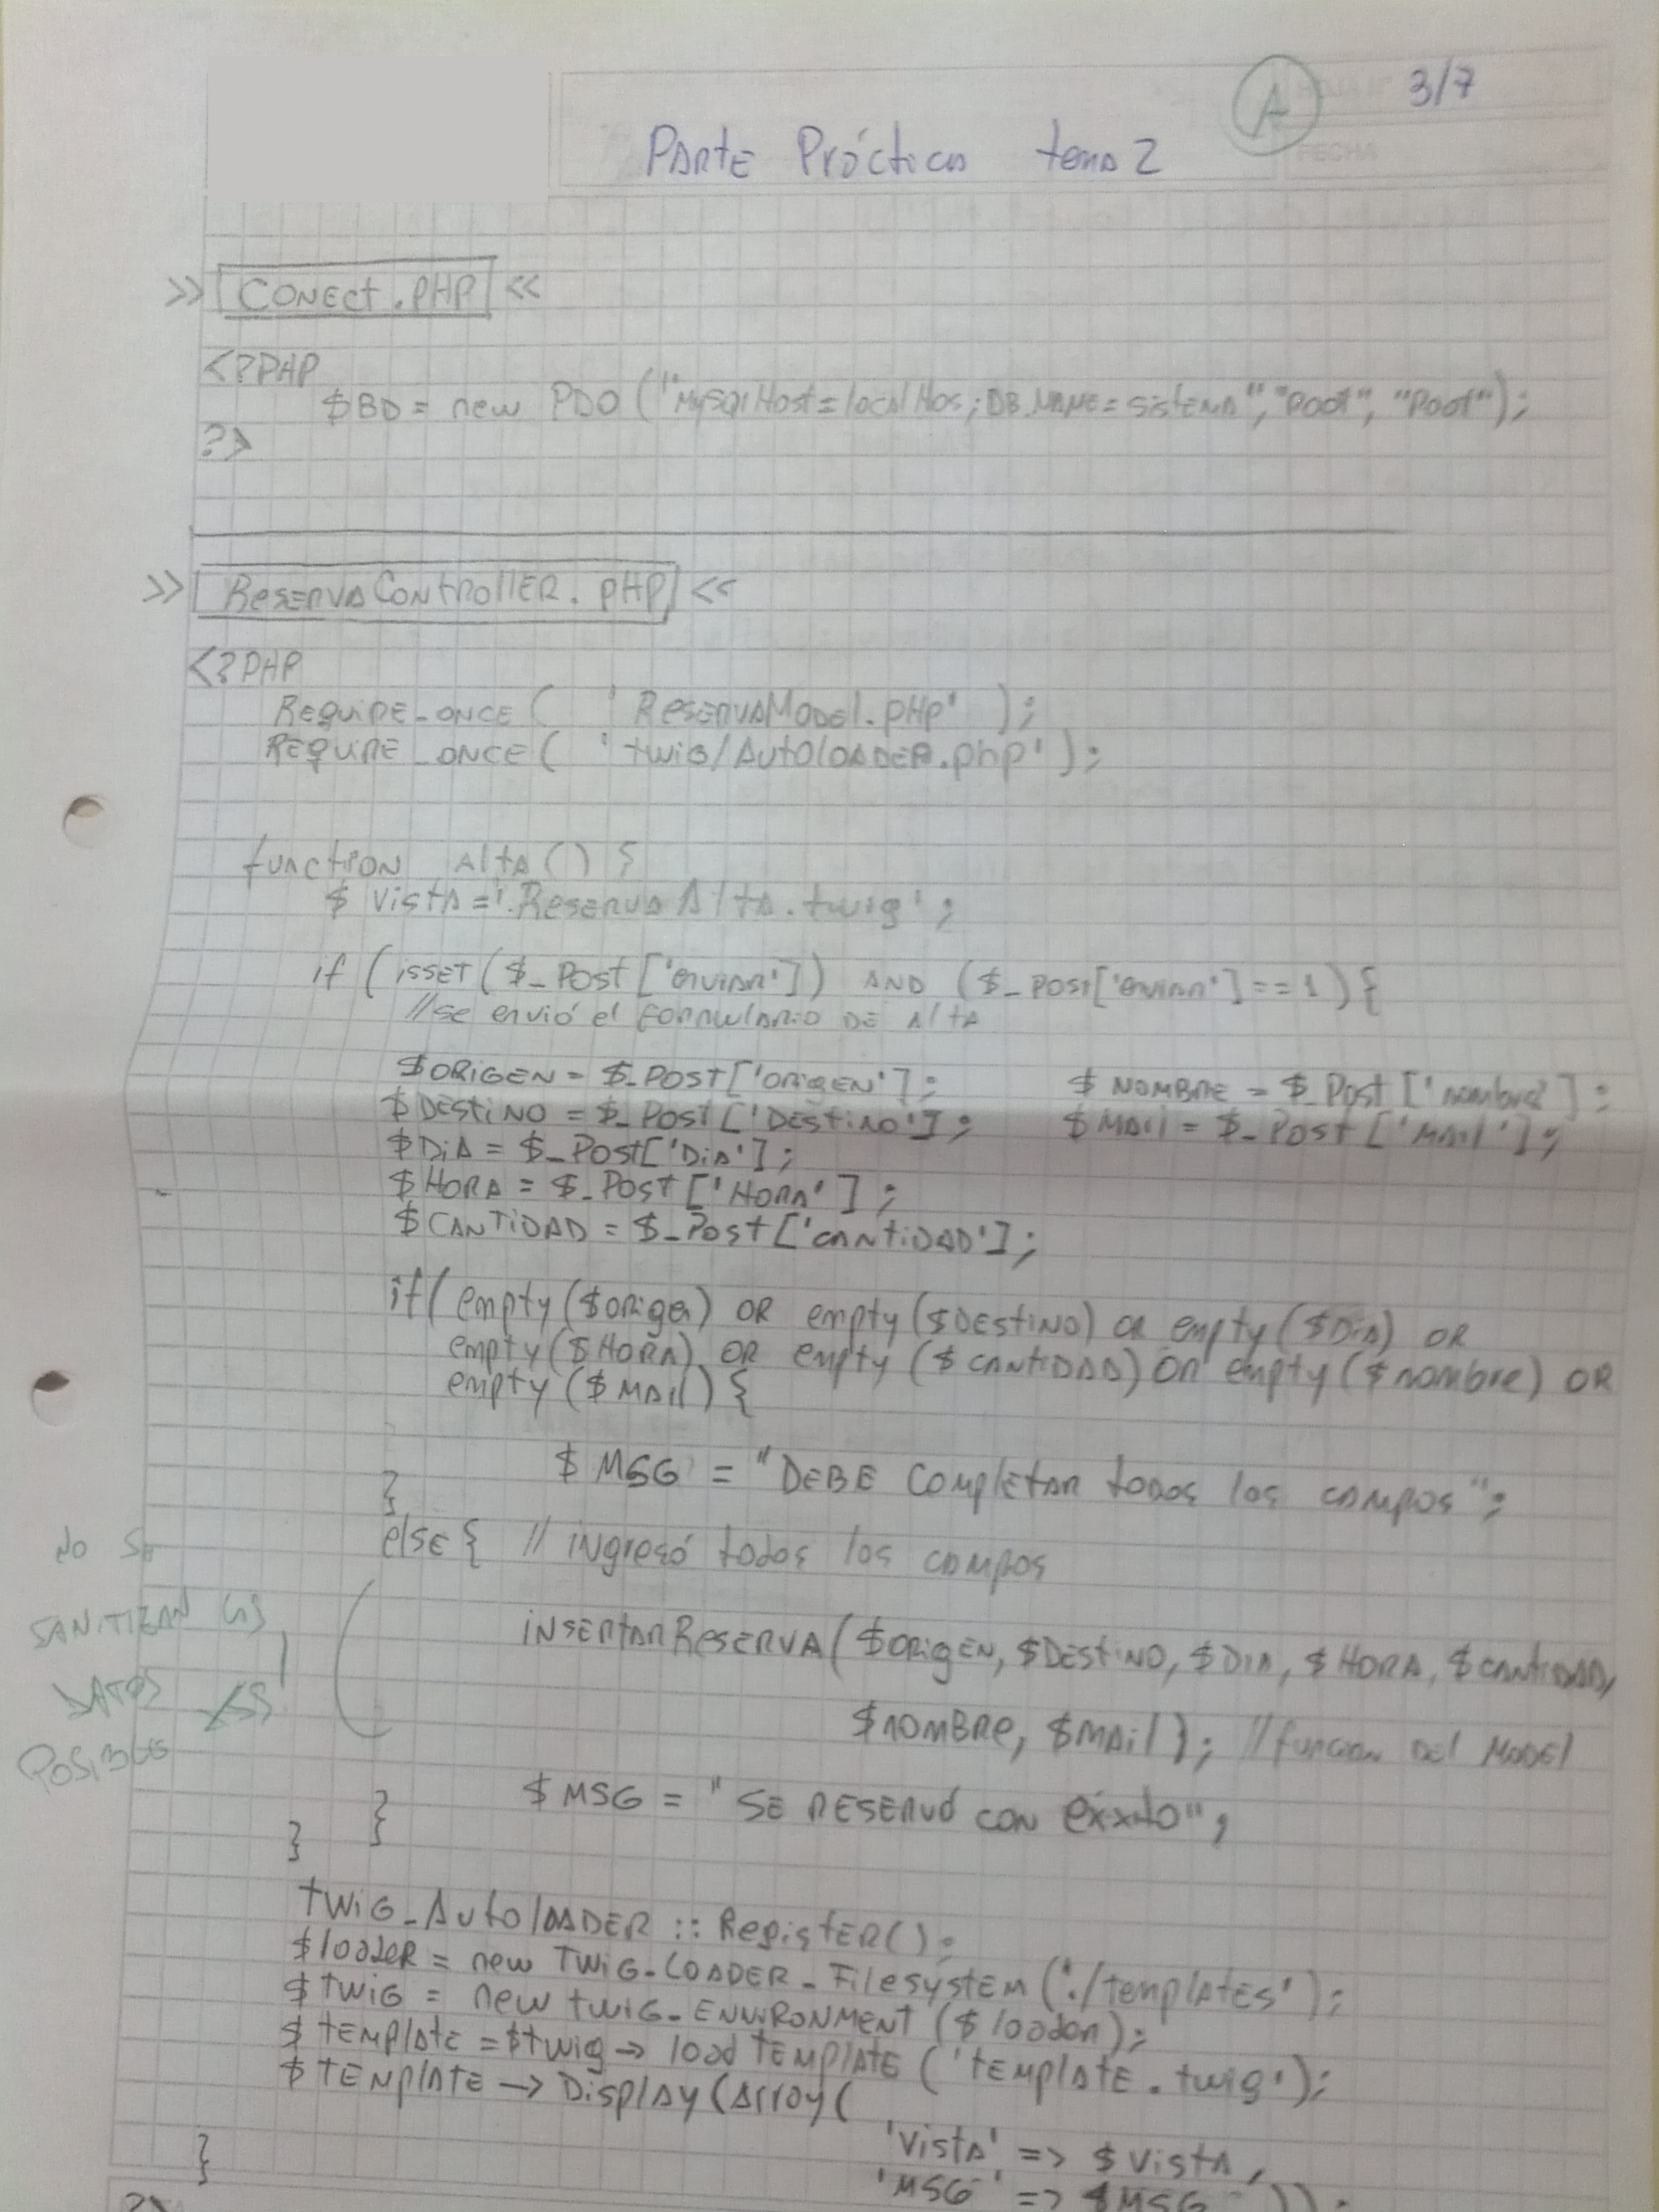 A
3/7
PARTE Práctica tema 2
FECHA
>> CONECT.PHP <<
<?PHP
$BD = new PDO ("MySqlHost=localHos;DB.NAME=sistema","Root", "Root");
?>
>> RESERVACONTROLLER.PHP <<
<?PHP
REQUIRE_ONCE ( 'RESERVAMODEL.PHP' );
REQUIRE_ONCE ( 'twig/AutoloADER.php' );
function AltA () {
$ VistA = 'ReservaAltA.twig' ;
if ( isset ($_Post ['enviar']) AND ($_Post['enviar']==1) {
//se envió el formulario DE AltA
$ORIGEN = $_POST['origEN']; $ NOMBRE = $_Post ['nombre'];
$DESTINO = $_Post['DESTINO']; $ MAil = $_Post ['MAil'];
$ DiA = $_Post['DiA'];
$ HORA = $_Post ['HORA'];
$ CANTIDAD = $_Post ['CANTIDAD'];
if( empty ($origen) OR empty ($DESTINO) OR empty ($DiA) OR
empty ($HORA) OR empty ($CANTIDAD) OR empty ($nombre) OR
empty ($ MAil) {
$ MSG = "DEBE Completar todos los campos";
}
else { // ingresó todos los campos
insertarReserva ($origEN, $DEStiNO, $DIA, $HORA, $CANTIDAD,
$NOMBRE, $MAil); //funcion Del MODEl
No SE
SANITIZAN los
DATOS XSS
POSIBLE
$ MSG = "SE RESERVó CON éxxito";
}
}
twiG_AutoloADER :: RegistER();
$loadeR = new TWiG_LOADER_Filesystem ('./templAtES');
$ twiG = new twiG_ENVIRONMENT ($loader);
$ tEmplAte = $twig -> load TEMPlATE ('tEmplAtE.twig');
$ tEmplAtE -> DisplAy (Array (
'VistA' => $ VistA,
'MSG' => $MSG ));
}
?>